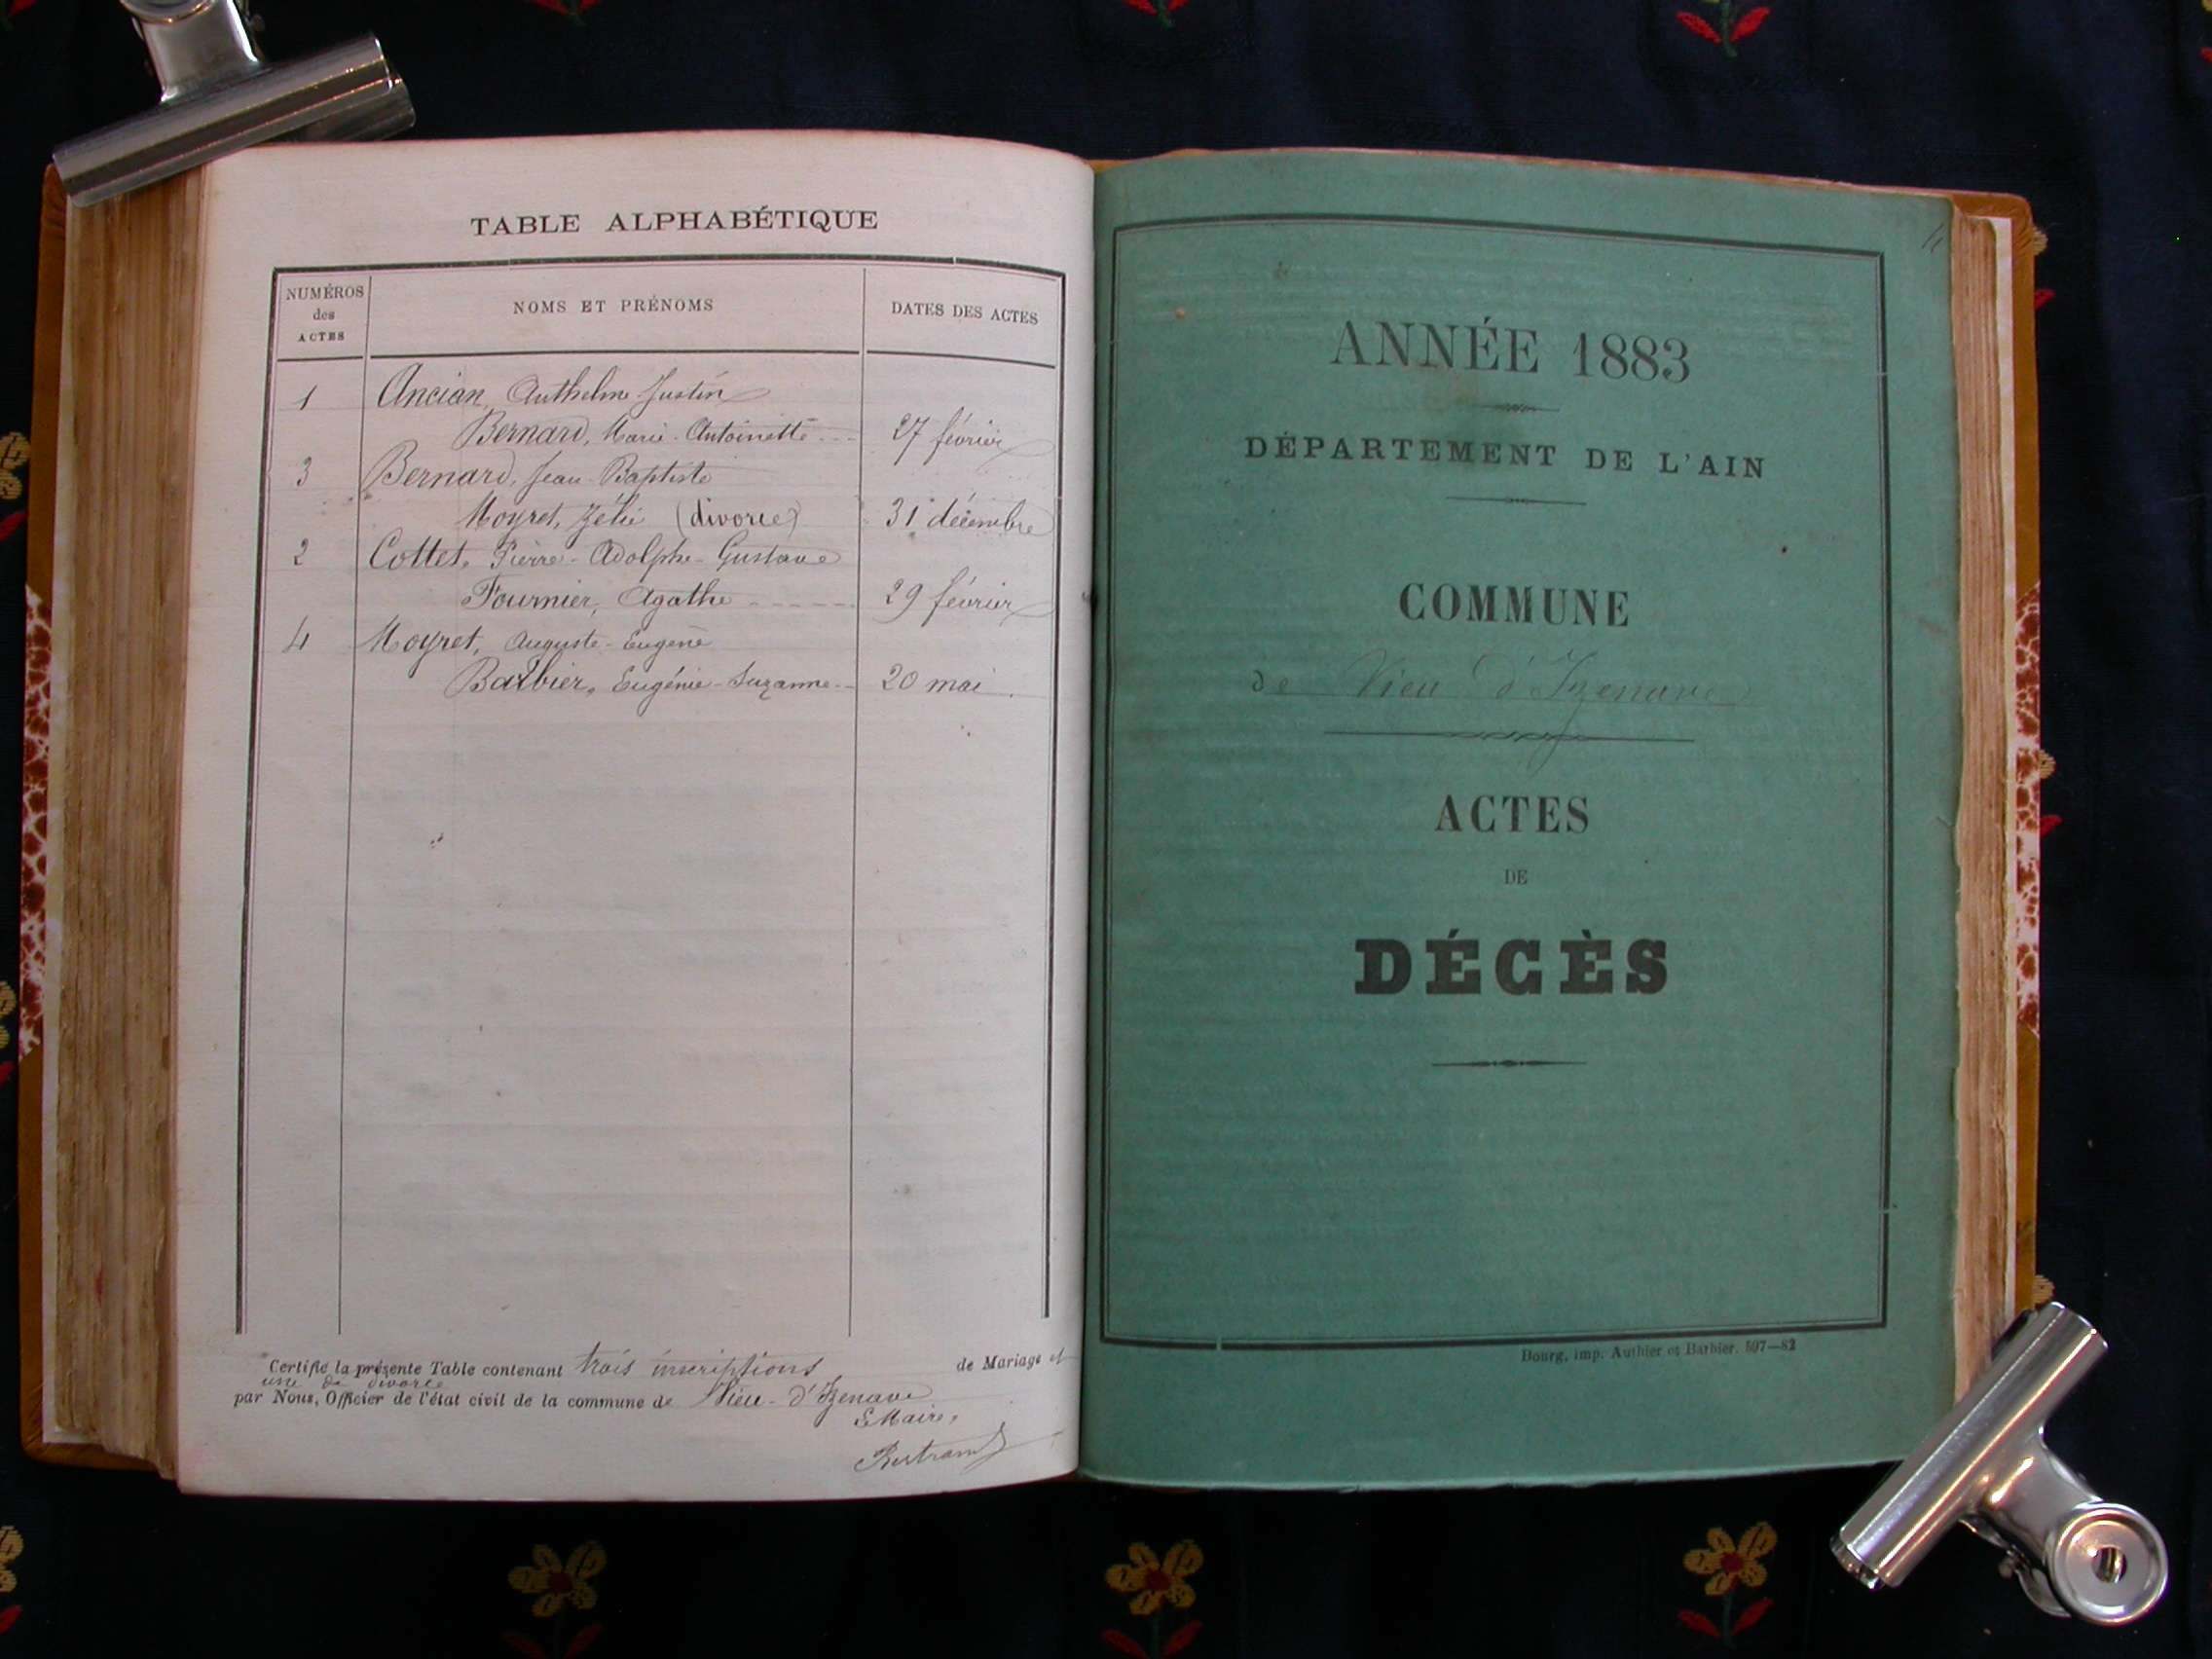 TABLE ALPHABÉTIQUE
NUMÉROS des ACTES
NOMS ET PRÉNOMS
DATES DES ACTES
1 Ancian, Anthelme Justin
Bernard, Marie-Antoinette 27 février
3 Bernard, Jean-Baptiste
Moyret, Zélie (divorce) 31 décembre
2 Cottet, Pierre-Adolphe-Gustave
Fournier, Agathe 29 février
4 Moyret, Auguste-Eugène
Barbier, Eugénie-Suzanne 20 mai
Certifié la présente Table contenant trois inscriptions de Mariage et
une de divorce
par Nous, Officier de l'état civil de la commune de Vieu-d'Izenave
Le Maire,
Bertrand
ANNÉE 1883
DÉPARTEMENT DE L'AIN
COMMUNE
de Vieu d'Izenave
ACTES
DE
DÉCÈS
Bourg, imp. Authier et Barbier. 597—82